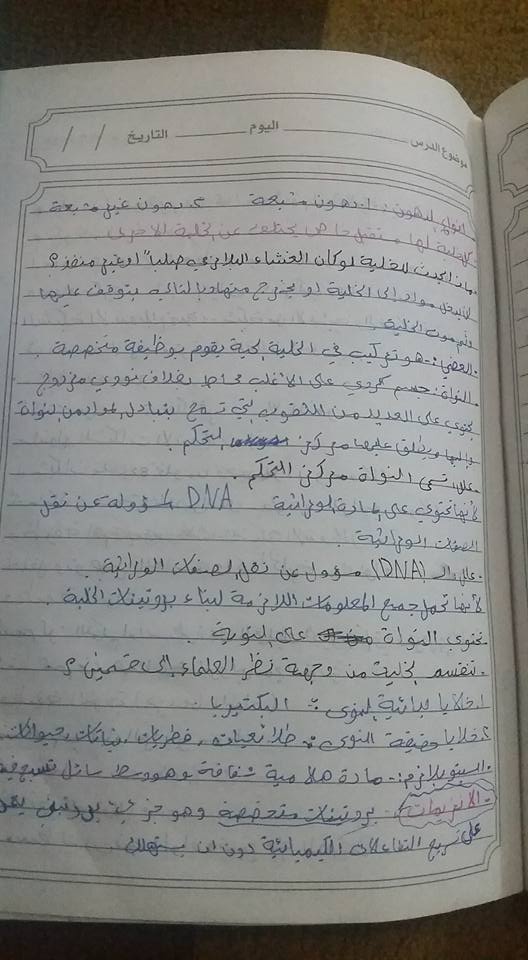 موضوع الدرس ــــــــ اليوم ــــــــ التاريخ / /
انواع الدهون : ١. دهون مشبعة ٢. دهون غير مشبعة
كل خلية لها مستقبل خاص يختلف عن الخلية الاخرى
ماذا يحدث للخلية لو كان الغشاء البلازمي صلباً او غير منفذ ؟
لن يدخل مواد الى الخلية او يخرج منها وبالتالي يتوقف عليها
موت الخلية .
العضي :- هو تركيب في الخلية الحية يقوم بوظيفة متخصصة .
النواة : جسم كروي على الاغلب محاط بغلاف نووي مزدوج
يحتوي على العديد من الثقوب التي تسمح بتبادل المواد من النواة
واليها ويطلق عليها مركز التحكم .
علل تسمى النواة مركز التحكم .
لأنها تحتوي على المادة الوراثية DNA المسؤولة عن نقل
الصفات الوراثية .
علل الـ (DNA) مسؤول عن نقل الصفات الوراثية .
لأنها تحمل جميع المعلومات اللازمة لبناء بروتينات الخلية .
تحتوي النواة على النوية .
تنقسم الخليت من وجهة نظر العلماء الى قسمين ؟
١. خلايا بدائية النوى : البكتيريا .
٢. خلايا حقيقة النوى : طلائعيات ، فطريات ، نباتات ، حيوانات
السيتوبلازم : مادة هلامية شفافة وهو وسط سائل تسبح فيه
- الانزيمات : بروتينات متخصصة وهو جزيء بروتيني يعمل
على تسريع التفاعلات الكيميائية دون ان يستهلك .